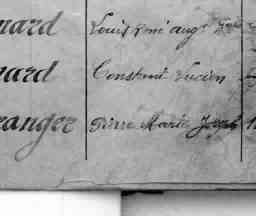 nard Louis René aug
nard Constant Lucien
ranger Pierre Marie Joseph 1